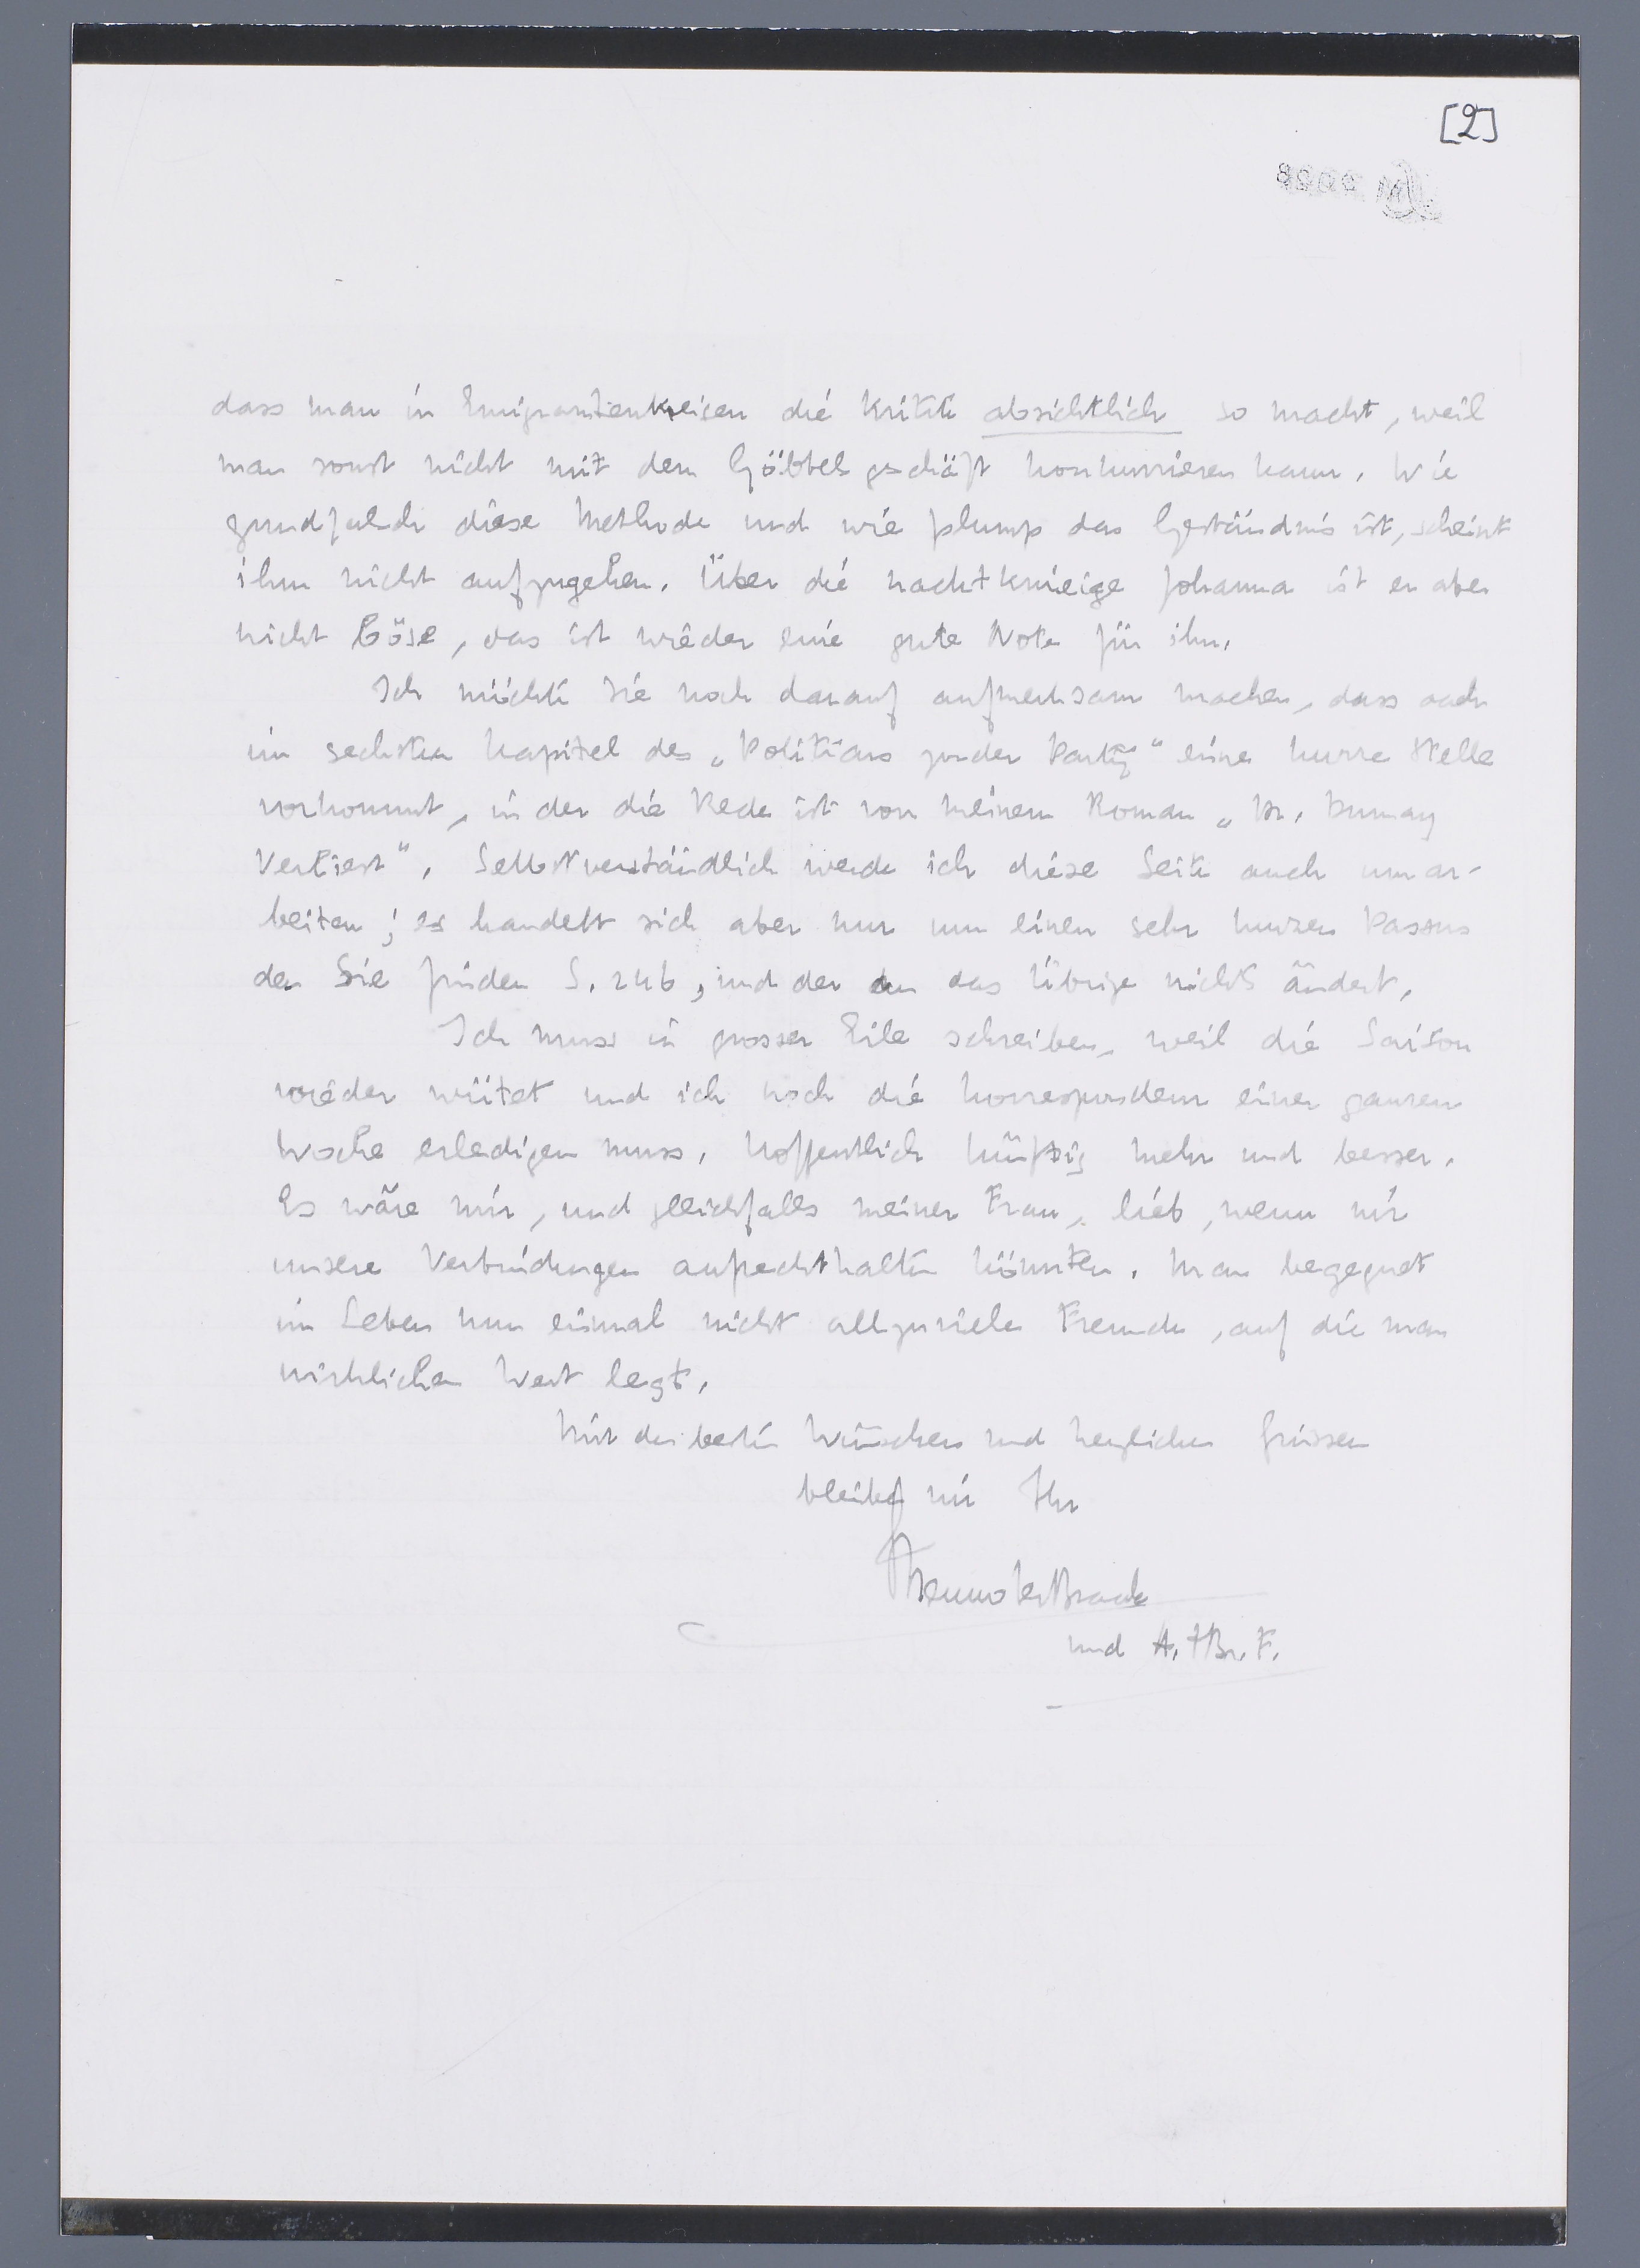 [2]
dass man in Emigrantenkreisen die Kritik absichtlich so macht, weil
man sonst nicht mit dem Göbbelsgeschäft konkurrieren kann. Wie
grundfalsch diese Methode und wie plump das Geständnis ist, scheint
ihm nicht aufzugehen. Über die nachtknieige Johanna ist er aber
nicht böse, das ist wieder eine gute Note für ihn.
Ich möchte Sie noch darauf aufmerksam machen, dass auch
im sechsten Kapitel des „Politikers zonder Partij" eine kurze Stelle
vorkommt, in der die Rede ist von meinem Roman „Dr. Dumay
Verliest". Selbstverständlich werde ich diese Seite auch umar-
beiten; es handelt sich aber nur um einen sehr kurzen Passus
den Sie finden S. 246, und der an das Übrige nichts ändert.
Ich muss in grosser Eile schreiben, weil die Saison
wieder wütet und ich noch die Korrespondenz einer ganzen
Woche erledigen muss. Hoffentlich künftig mehr und besser.
Es wäre mir, und gleichfalls meiner Frau, lieb, wenn wir
unsere Verbindungen aufrechthalten könnten. Man begegnet
im Leben nun einmal nicht allzuviele Freunde, auf die man
wirklichen Wert legt.
Mit den besten Wünschen und herzlichen Grüssen
bleibt mir Ihr
Menno ter Braak
und A. tBr. F.